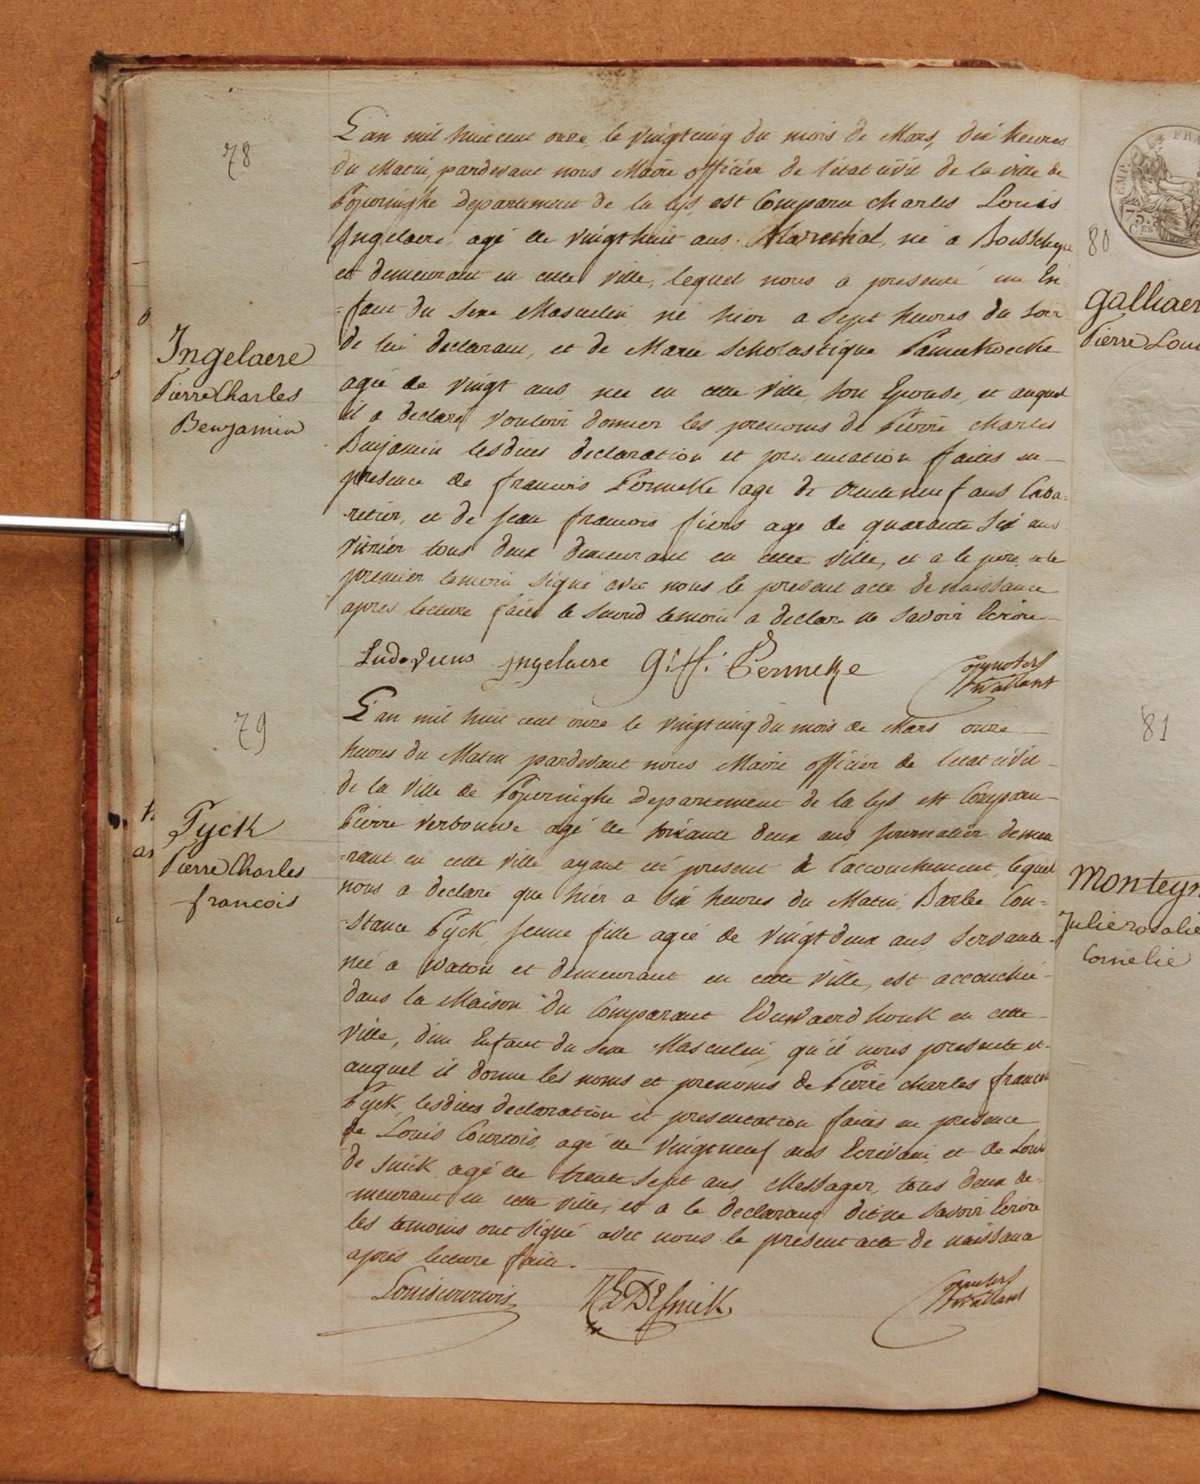 78
L'an mil huit cent onze le vingtcinq du mois de Mars, dix heures
du Matin, pardevant nous Maire officier de l'etat civil de la ville de
Poperinghe departement de la Lys, est Comparu Charles Louis
Ingelaere, agé de vingthuit ans, Marechal, né a Boesschepe
et demeurant en cette ville, lequel nous a presenté un En-
-fant du sexe Masculin né hier a sept heures du soir
de lui declarant, et de Marie Scholastique
agée de vingt ans, née en cette ville, son Epouse, et auquel
il a declaré vouloir donner les prenoms de Pierre Charles
Benjamin lesdites declaration et presentation faites en
presence de francois Permeke agé de trente neuf ans Caba-
-retier, et de Jean francois fiers agé de quarante six ans
vitrier tous deux demeurant en cette ville, et a le pere, et le
premier temoin signé avec nous le present acte de naissance
apres lecture faite le second temoin a declaré ne savoir Ecrire
Ingelaere
Pierre Charles
Benjamin
Ludovicus Ingelaere Permeke
79
L'an mil huit cent onze le vingtcinq du mois de Mars onze
heures du Matin pardevant nous Maire officier de l'etat civil
de la ville de Poperinghe departement de la Lys, est Comparu
Pierre Verbouwe agé de soixante deux ans Journalier demeu
-rant en cette ville ayant eté present a l'accouchement, lequel
nous a declaré que hier a six heures du Matin, Barbe Con-
-stance Tyck, Jeune fille agée de vingt deux ans Servante
née a Watou et demeurant en cette ville, est accouchée
dans la Maison du Comparant en cette
ville, d'un Enfant du sexe Masculin, qu'il nous presente et
auquel il donne les noms et prenoms de Pierre Charles francois
Tyck, lesdites declaration et presentation faites en presence
de Louis Courtois, agé de vingtneuf ans Ecrivain, et de Louis
de Snick agé de trente sept ans Messager, tous deux de-
-meurant en cette ville, et a le declarant dit ne savoir Ecrire
les temoins ont signé avec nous le present acte de naissance
apres lecture faite.
Tyck
Pierre Charles
francois
Louis Courtois DeSnick
80
galliaer
Pierre Loui
81
Monteyn
Julie rosalie
Cornelie